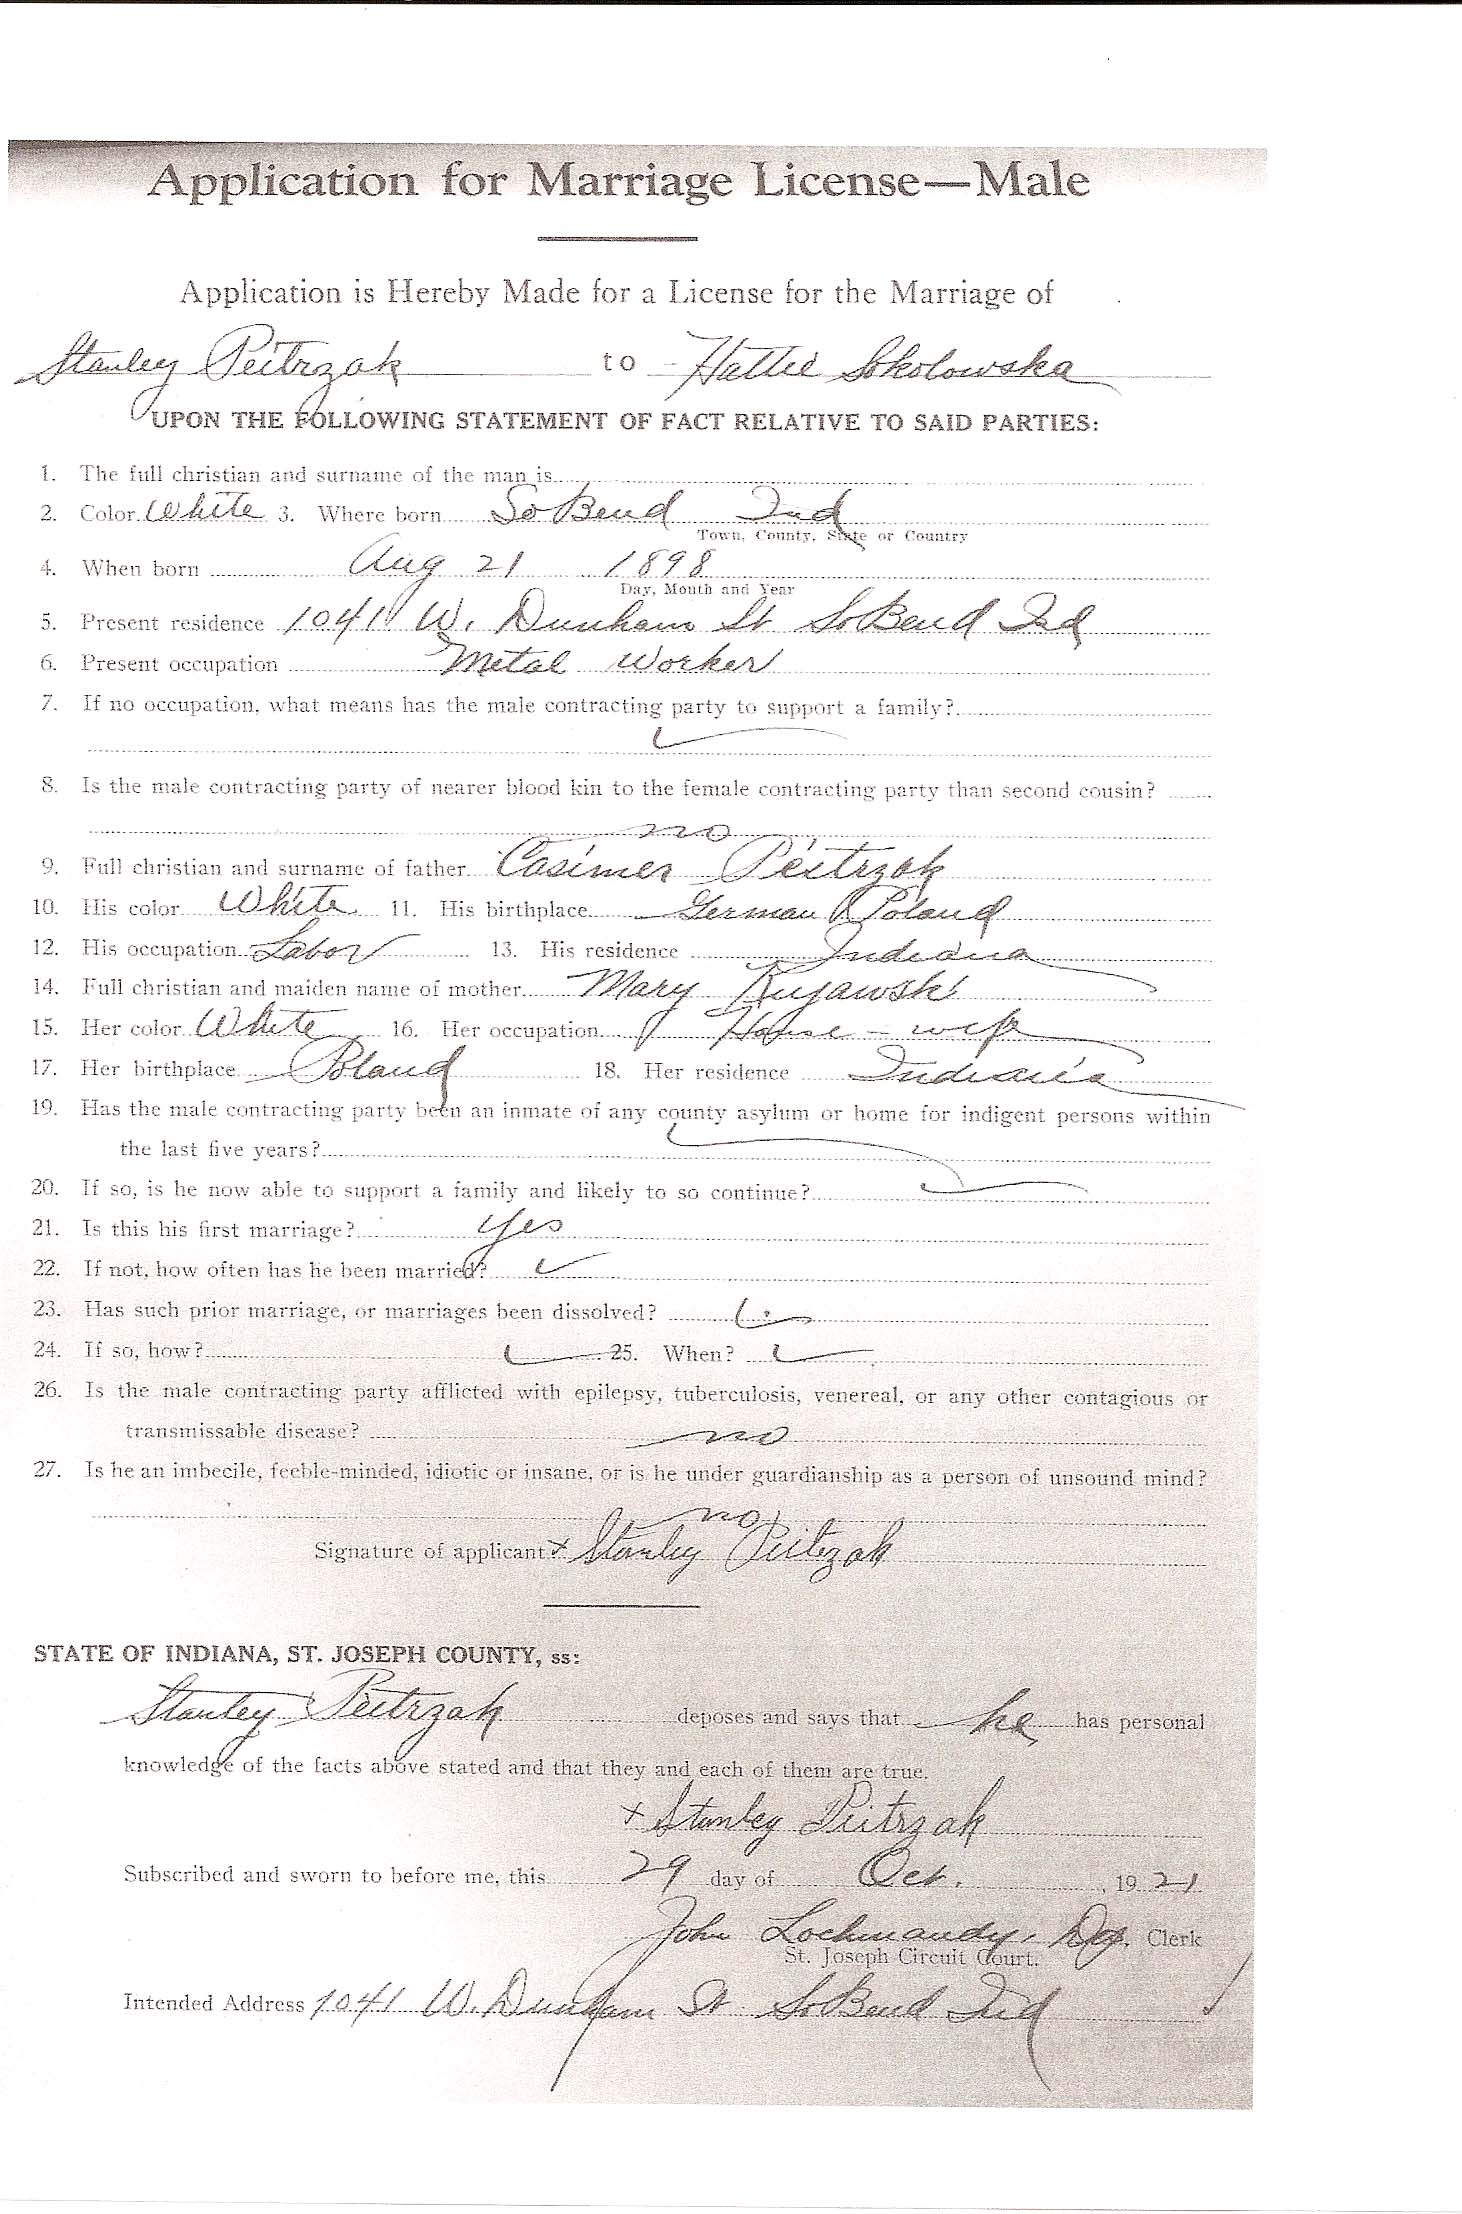 Application for Marriage License—Male
Application is Hereby Made for a License for the Marriage of
Stanley Peitrzak to Hattie Sokolowska
UPON THE FOLLOWING STATEMENT OF FACT RELATIVE TO SAID PARTIES:
1. The full christian and surname of the man is
2. Color White 3. Where born So Bend Ind
Town, County, State or Country
4. When born Aug 21 1898
Day, Month and Year
5. Present residence 1041 W. Dunham St So Bend Ind
6. Present occupation Metal Worker
7. If no occupation, what means has the male contracting party to support a family?
8. Is the male contracting party of nearer blood kin to the female contracting party than second cousin?
no
9. Full christian and surname of father Casimer Peitrzak
10. His color White 11. His birthplace German Poland
12. His occupation Labor 13. His residence Indiana
14. Full christian and maiden name of mother Mary Kujawski
15. Her color White 16. Her occupation House - wife
17. Her birthplace Poland 18. Her residence Indiana
19. Has the male contracting party been an inmate of any county asylum or home for indigent persons within
the last five years?
20. If so, is he now able to support a family and likely to so continue?
21. Is this his first marriage? yes
22. If not, how often has he been married?
23. Has such prior marriage, or marriages been dissolved?
24. If so, how? 25. When?
26. Is the male contracting party afflicted with epilepsy, tuberculosis, venereal, or any other contagious or
transmissable disease? no
27. Is he an imbecile, feeble-minded, idiotic or insane, or is he under guardianship as a person of unsound mind?
no
Signature of applicant x Stanley Peitrzak
STATE OF INDIANA, ST. JOSEPH COUNTY, ss:
Stanley Peitrzak deposes and says that he has personal
knowledge of the facts above stated and that they and each of them are true.
x Stanley Peitrzak
Subscribed and sworn to before me, this 29 day of Oct. , 1921
John Lochmandy, Dep. Clerk
St. Joseph Circuit Court.
Intended Address 1041 W. Dunham St So Bend Ind